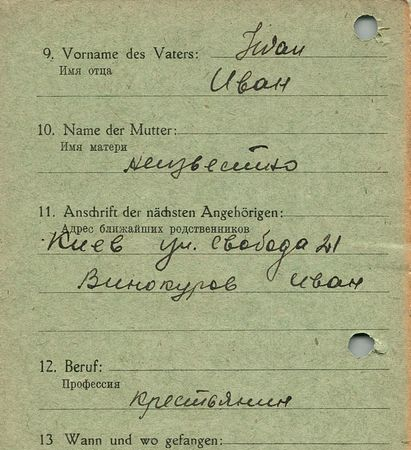 9. Vorname des Vaters: Iwan
Имя отца
Иван
10. Name der Mutter:
Имя матери
неизвестно
11. Anschrift der nächsten Angehörigen:
Адрес ближайших родственников
Киев ул. свобода 21
Винокуров Иван
12. Beruf:
Профессия
крестьянин
13 Wann und wo gefangen: